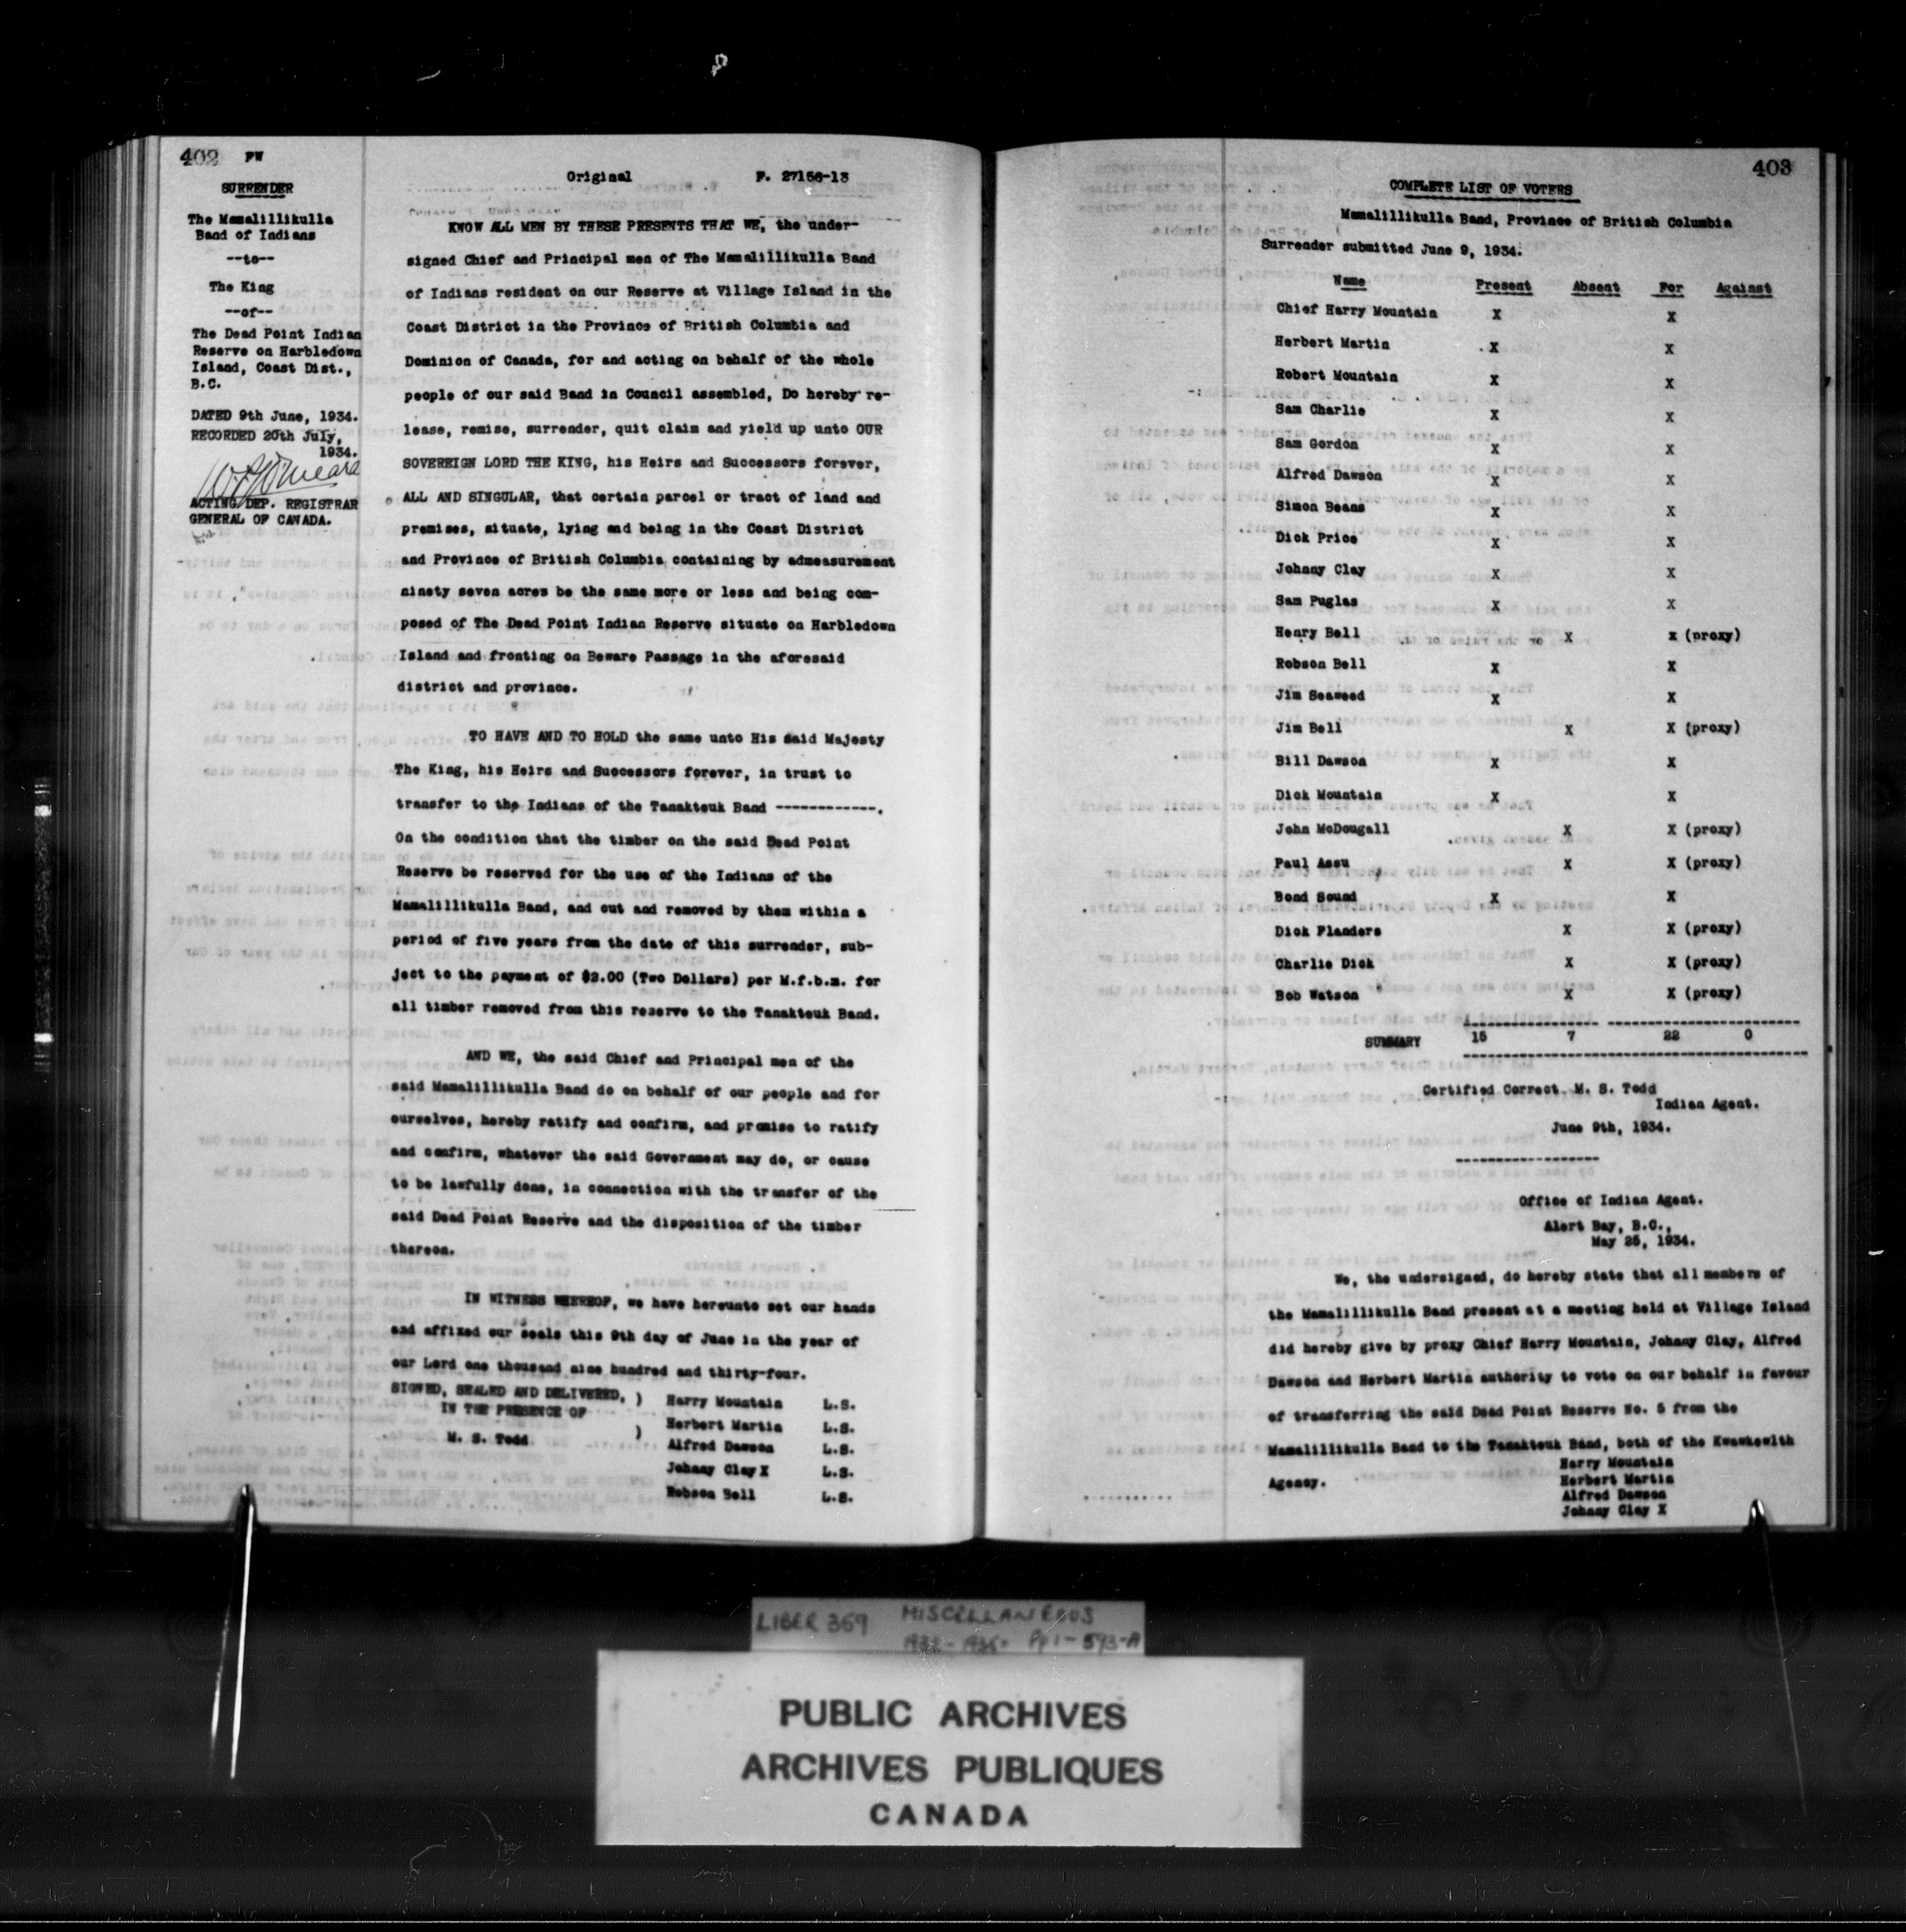 402 FW
SURRENDER
The Mamalillikulla
Band of Indians
--to--
The King
--of--
The Dead Point Indian
Reserve on Harbledown
Island, Coast Dist.,
B.C.
DATED 9th June, 1934.
RECORDED 20th July,
1934.
ACTING/DEP. REGISTRAR
GENERAL OF CANADA.
Original F. 27156-13
KNOW ALL MEN BY THESE PRESENTS THAT WE, the under-
signed Chief and Principal men of The Mamalillikulla Band
of Indians resident on our Reserve at Village Island in the
Coast District in the Province of British Columbia and
Dominion of Canada, for and acting on behalf of the whole
people of our said Band in Council assembled, Do hereby re-
lease, remise, surrender, quit claim and yield up unto OUR
SOVEREIGN LORD THE KING, his Heirs and Successors forever,
ALL AND SINGULAR, that certain parcel or tract of land and
premises, situate, lying and being in the Coast District
and Province of British Columbia containing by admeasurement
ninety seven acres be the same more or less and being com-
posed of The Dead Point Indian Reserve situate on Harbledown
Island and fronting on Beware Passage in the aforesaid
district and province.
TO HAVE AND TO HOLD the same unto His said Majesty
The King, his Heirs and Successors forever, in trust to
transfer to the Indians of the Tanakteuk Band ------------.
On the condition that the timber on the said Dead Point
Reserve be reserved for the use of the Indians of the
Mamalillikulla Band, and cut and removed by them within a
period of five years from the date of this surrender, sub-
ject to the payment of $2.00 (Two Dollars) per M.f.b.m. for
all timber removed from this reserve to the Tanakteuk Band.
AND WE, the said Chief and Principal men of the
said Mamalillikulla Band do on behalf of our people and for
ourselves, hereby ratify and confirm, and promise to ratify
and confirm, whatever the said Government may do, or cause
to be lawfully done, in connection with the transfer of the
said Dead Point Reserve and the disposition of the timber
thereon.
IN WITNESS WHEREOF, we have hereunto set our hands
and affixed our seals this 9th day of June in the year of
our Lord one thousand nine hundred and thirty-four.
SIGNED, SEALED AND DELIVERED, ) Harry Mountain L.S.
IN THE PRESENCE OF
Herbert Martin L.S.
M. S. Todd ) Alfred Dawson L.S.
Johnny Clay X L.S.
Robson Bell L.S.
403
COMPLETE LIST OF VOTERS
Mamalillikulla Band, Province of British Columbia
Surrender submitted June 9, 1934.
Name Present Absent For Against
Chief Harry Mountain X X
Herbert Martin X X
Robert Mountain X X
Sam Charlie X X
Sam Gordon X X
Alfred Dawson X X
Simon Beans X X
Dick Price X X
Johnny Clay X X
Sam Puglas X X
Henry Bell X x (proxy)
Robson Bell X X
Jim Seaweed X X
Jim Bell X X (proxy)
Bill Dawson X X
Dick Mountain X X
John McDougall X X (proxy)
Paul Assu X X (proxy)
Bond Sound X X
Dick Flanders X X (proxy)
Charlie Dick X X (proxy)
Bob Watson X X (proxy)
SUMMARY 15 7 22 0
Certified Correct M. S. Todd
Indian Agent.
June 9th, 1934.
Office of Indian Agent.
Alert Bay, B.C.,
May 25, 1934.
We, the undersigned, do hereby state that all members of
the Mamalillikulla Band present at a meeting held at Village Island
did hereby give by proxy Chief Harry Mountain, Johnny Clay, Alfred
Dawson and Herbert Martin authority to vote on our behalf in favour
of transferring the said Dead Point Reserve No. 5 from the
Mamalillikulla Band to the Tanakteuk Band, both of the Kwawkewlth
Agency.
Harry Mountain
Herbert Martin
Alfred Dawson
Johnny Clay X
LIBER 369 MISCELLANEOUS
1932 - 1935 Pp 1 - 593-A
PUBLIC ARCHIVES
ARCHIVES PUBLIQUES
CANADA